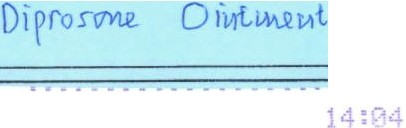 Diprosone Ointment
14:04